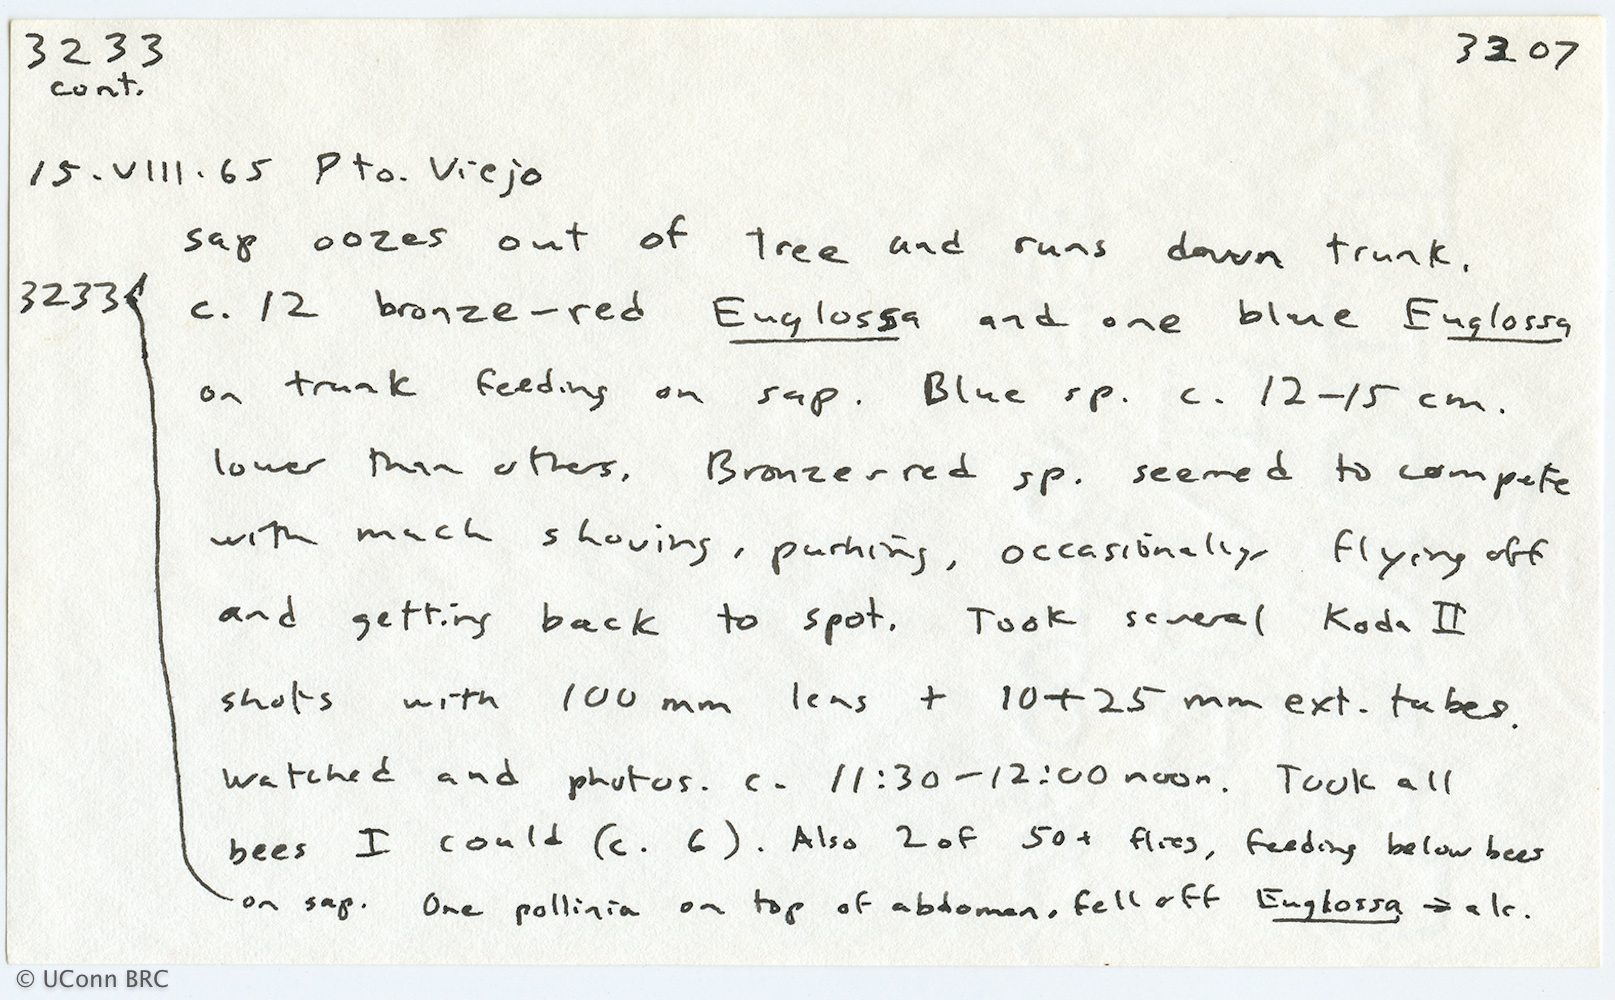 3233 3207
cont.
15.VIII.65 Pto. Viejo
sap oozes out of tree and runs down trunk.
3233 c. 12 bronze-red Euglossa and one blue Euglossa
on trunk feeding on sap. Blue sp. c. 12-15 cm.
lower than others. Bronze-red sp. seemed to compete
with much shoving, pushing, occasionally flying off
and getting back to spot. Took several Koda II
shots with 100 mm lens + 10+25 mm ext. tubes.
Watched and photos. c. 11:30-12:00 noon. Took all
bees I could (c. 6). Also 2 of 50+ flies, feeding below bees
on sap. One pollinia on top of abdomen, fell off Euglossa → alc.
© UConn BRC